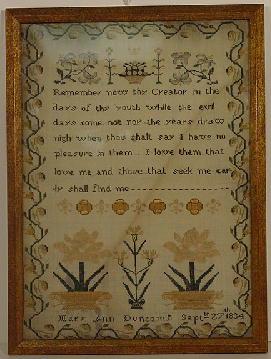 Remember now thy Creator in the
days of thy youth while the evil
days come not nor the years draw
nigh when thou shalt say I have no
pleasure in them I love them that
love me and those that seek me ear
ly shall find me
Mary Ann Sept 27 1834